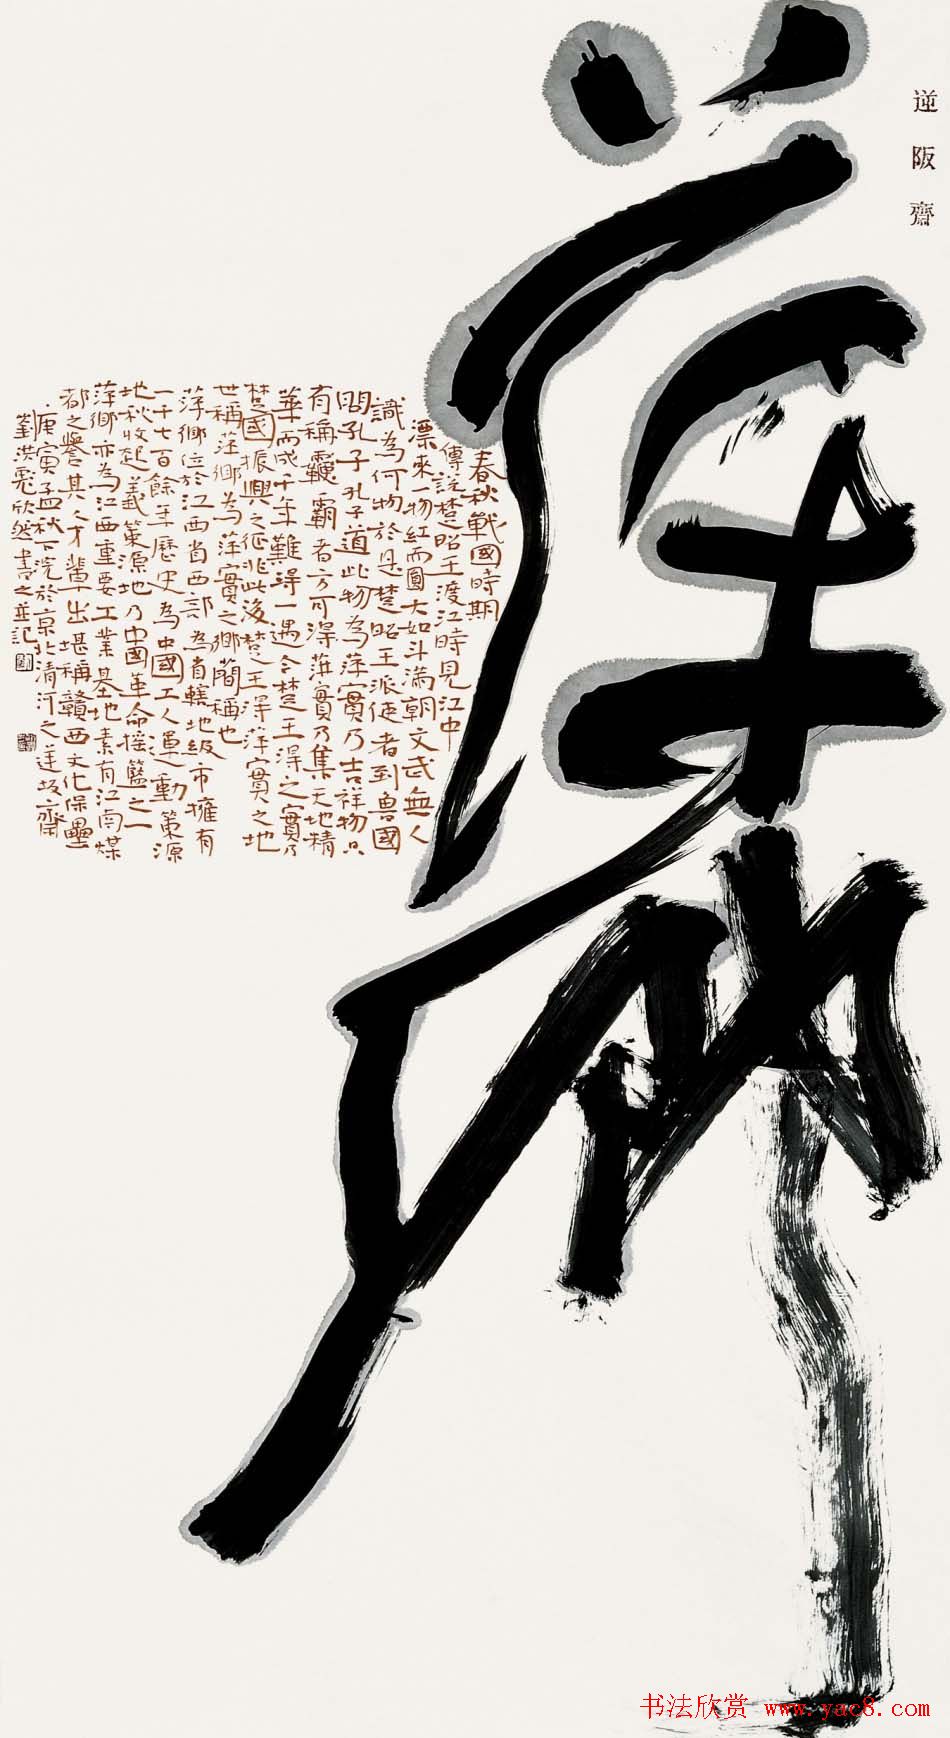 逆阪齋
萍
春秋戰國時期
傳說楚昭王渡江時見江中
漂來一物紅而圓大如斗滿朝文武無人
識為何物於是楚昭王派使者到魯國
問孔子孔子道此物為萍實乃吉祥物只
有稱霸者方可得萍實乃集天地精
華而成千年難得一遇今楚王得之實乃
楚國振興之征兆此後楚王得萍實之地
世稱萍鄉為萍實之鄉簡稱也
萍鄉位於江西省西部為省轄地級市擁有
一千七百餘年歷史為中國工人運動策源
地秋收起義策源地乃中國革命搖籃之一
萍鄉亦為江西重要工業基地素有江南煤
都之譽其人才輩出堪稱贛西文化保壘
庚寅孟秋下浣於京北清河之逆坂齋
劉洪彪欣然書之並記
书法欣赏 www.yac8.com